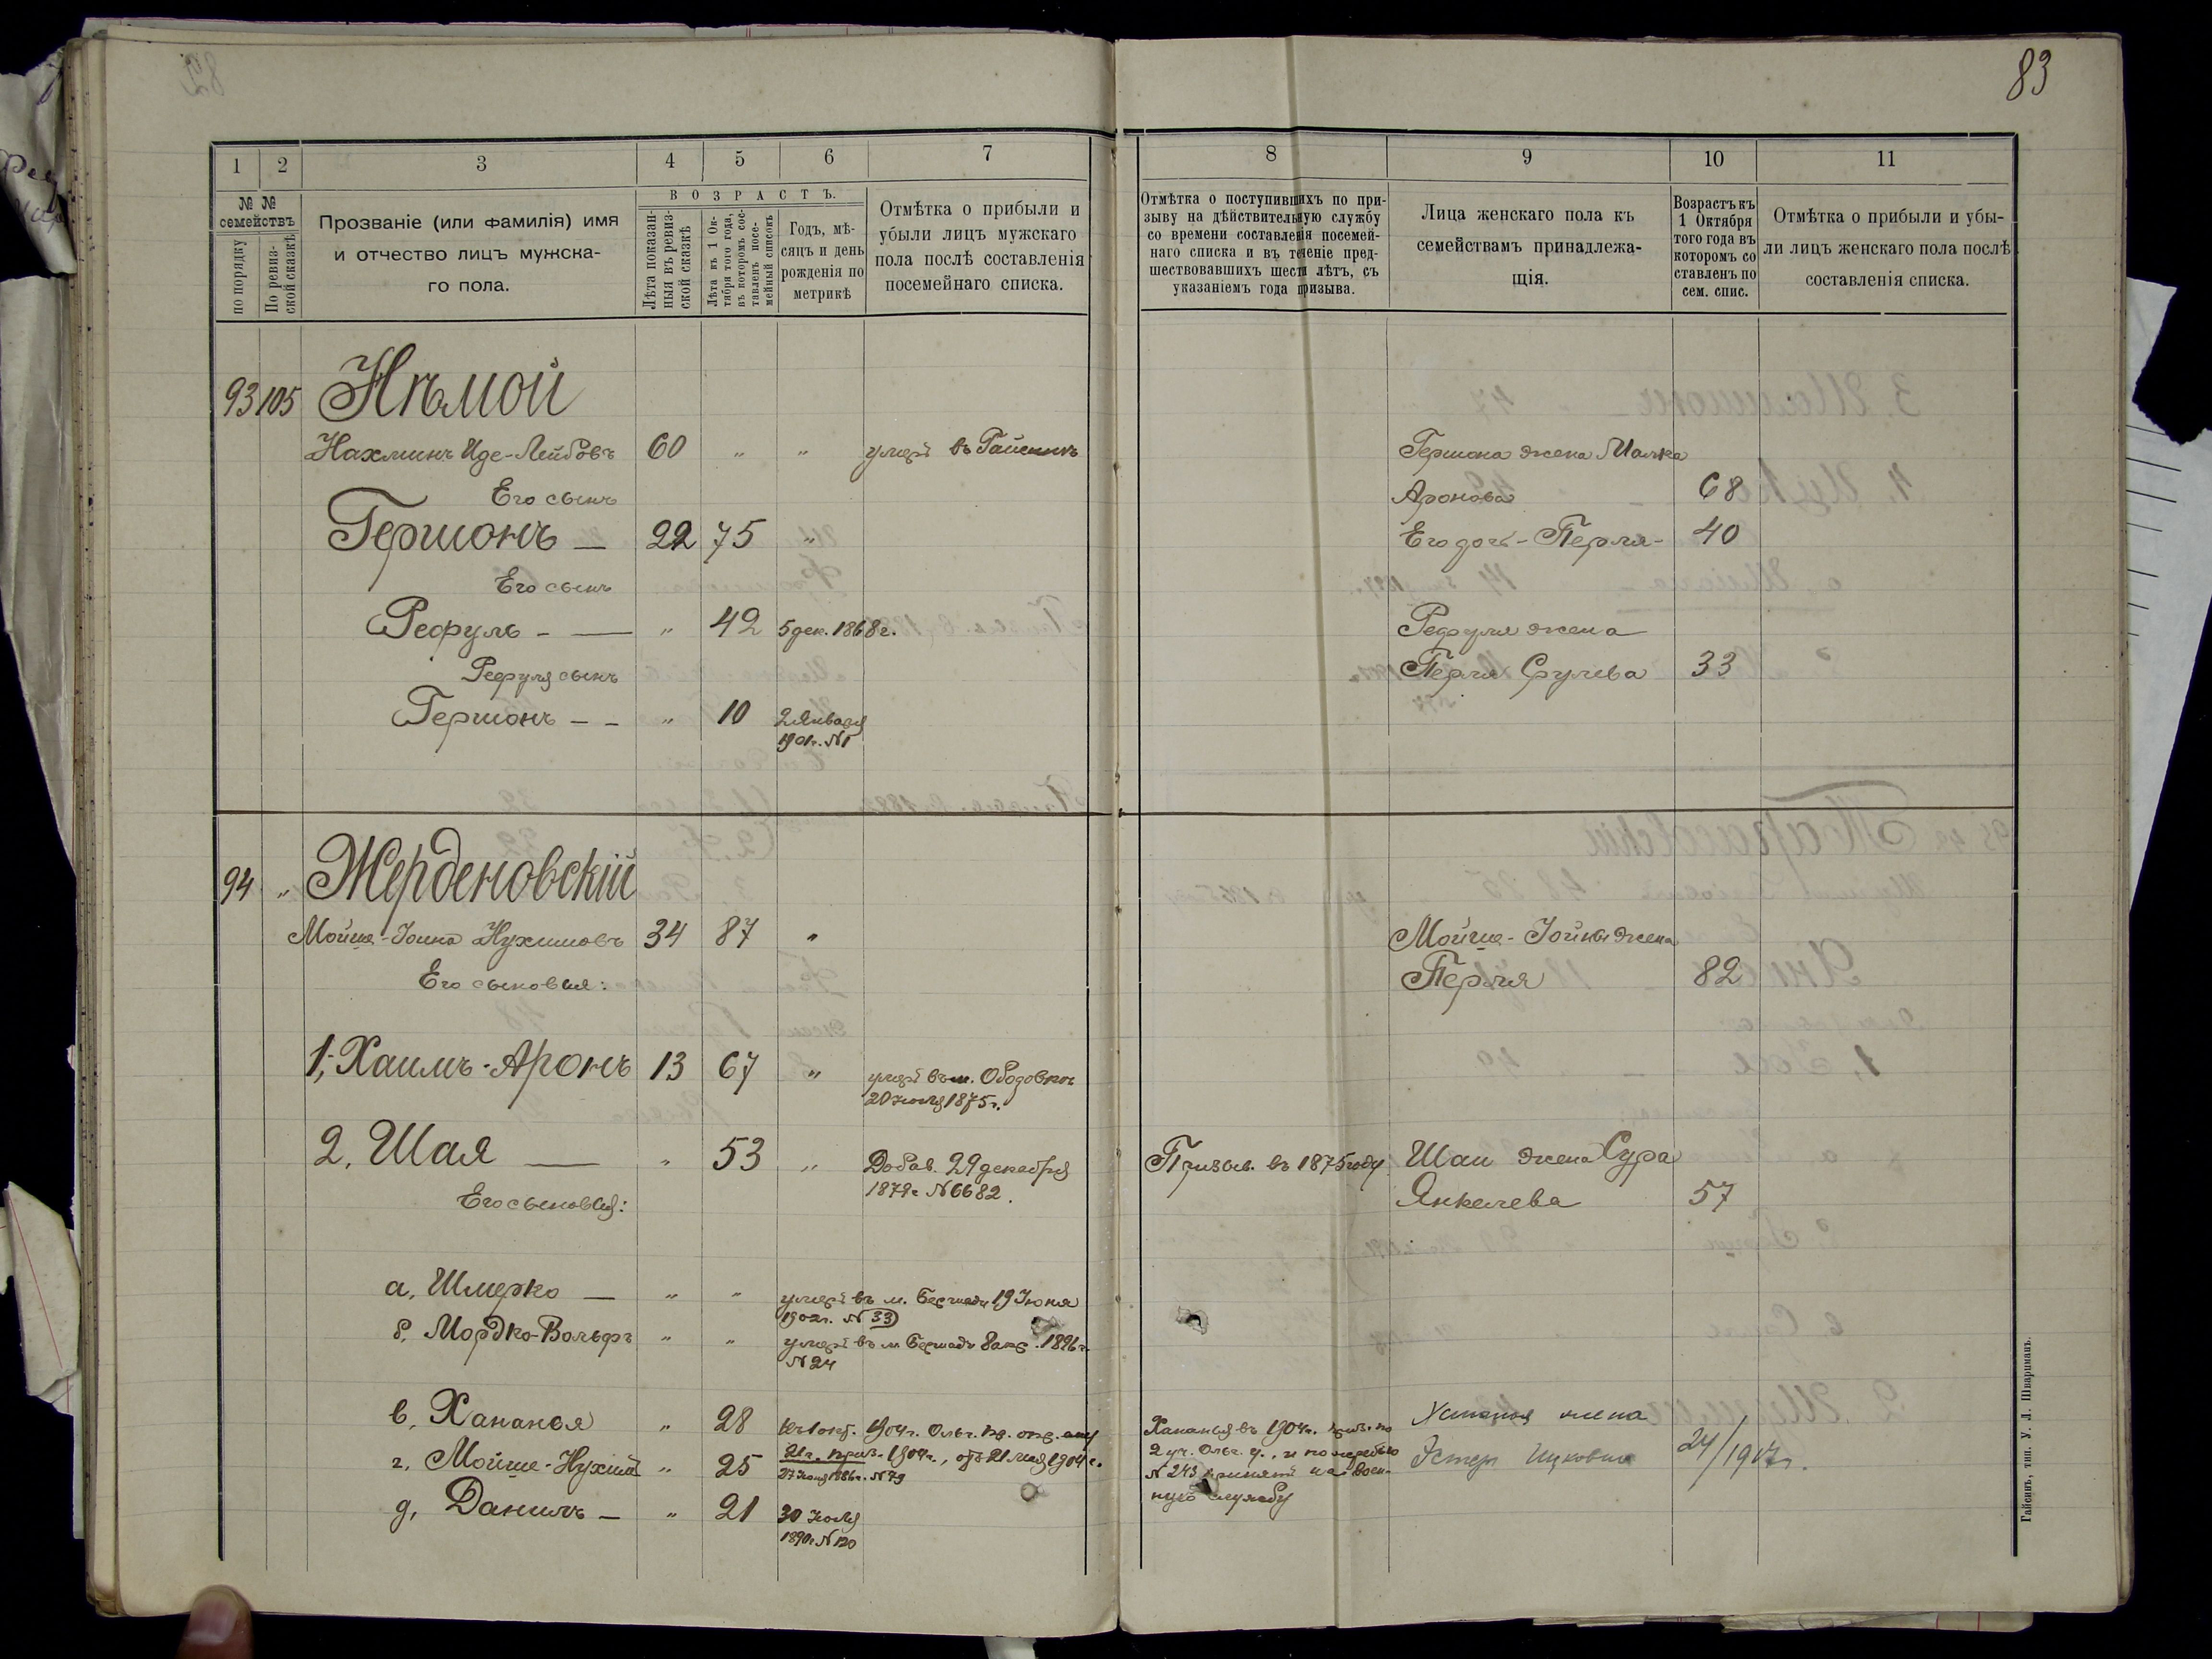 83
1 2 3 4 5 6 7
№ №
семействъ
по порядку
По ревиз-
ской сказкѣ
Прозваніе (или фамилія) имя
и отчество лицъ мужска-
го пола.
ВОЗРАСТЪ.
Лѣта показан-
ныя въ ревиз-
ской сказкѣ
Лѣта къ 1 Ок-
тября того года,
въ которомъ сос-
тавленъ посе-
мейный списокъ
Годъ, мѣ-
сяцъ и день
рожденія по
метрикѣ
Отмѣтка о прибыли и
убыли лицъ мужскаго
пола послѣ составленія
посемейнаго списка.
93 105 Нѣмой
Нахминъ Иде-Лейбовъ 60 " " умеръ въ Гайсинѣ
Его сынъ
Гершонъ — 22 75 "
Его сынъ
Рефуль - — " 42 5 дек. 1868 г.
Рефуля сынъ
Гершонъ - - " 10 2 Января
1901 г. №1
94 " Жерденовскій
Мойше-Іойна Нухимовъ 34 87 "
Его сыновья:
1, Хаимъ-Аронъ 13 67 " умеръ въ м. Ободовкѣ
20 Іюля 1875 г.
2, Шая — " 53 " Добав. 29 декабря
1879 г. №6682.
Его сыновья:
а, Шмерко — " " умеръ въ м. Бершади 19 Іюня
1902 г. №33
б, Мордко-Вольфъ " " умеръ въ м Бершади 8 апр. 1896 г.
№24
в, Хананья " 28 къ 1 окт. 1904 г. Ольг. пр. опр. ему
21 г. приз. 1904 г., отъ 21 мая 1904 г.
г, Мойше-Нухимъ " 25 27 Іюня 1886 г. №79
д, Данилъ — " 21 30 Іюля
1890 г. №120
8 9 10 11
Отмѣтка о поступившихъ по при-
зыву на дѣйствительную службу
со времени составленія посемей-
наго списка и въ теченіе пред-
шествовавшихъ шести лѣтъ, съ
указаніемъ года призыва.
Лица женскаго пола къ
семействамъ принадлежа-
щія.
Возрастъ къ
1 Октября
того года въ
которомъ со
ставленъ по
сем. спис.
Отмѣтка о прибыли и убы-
ли лицъ женскаго пола послѣ
составленія списка.
Гершона жена Малка
Аронова 68
Его дочь - Перля - 40
Рефуля жена
Перля Срулева 33
Мойше-Іойны жена
Перля 82
Призыв. въ 1875 году Шаи жена Сура
Янкелева 57
Хананья въ 1904 г. приз. по
2 уч. Ольг. у., и по жеребью
№243 принятъ на воен-
ную службу
Хананья жена
Эстер Ицковна 24/1917 г.
Гайсинъ, тип. У. Л. Шваримань.